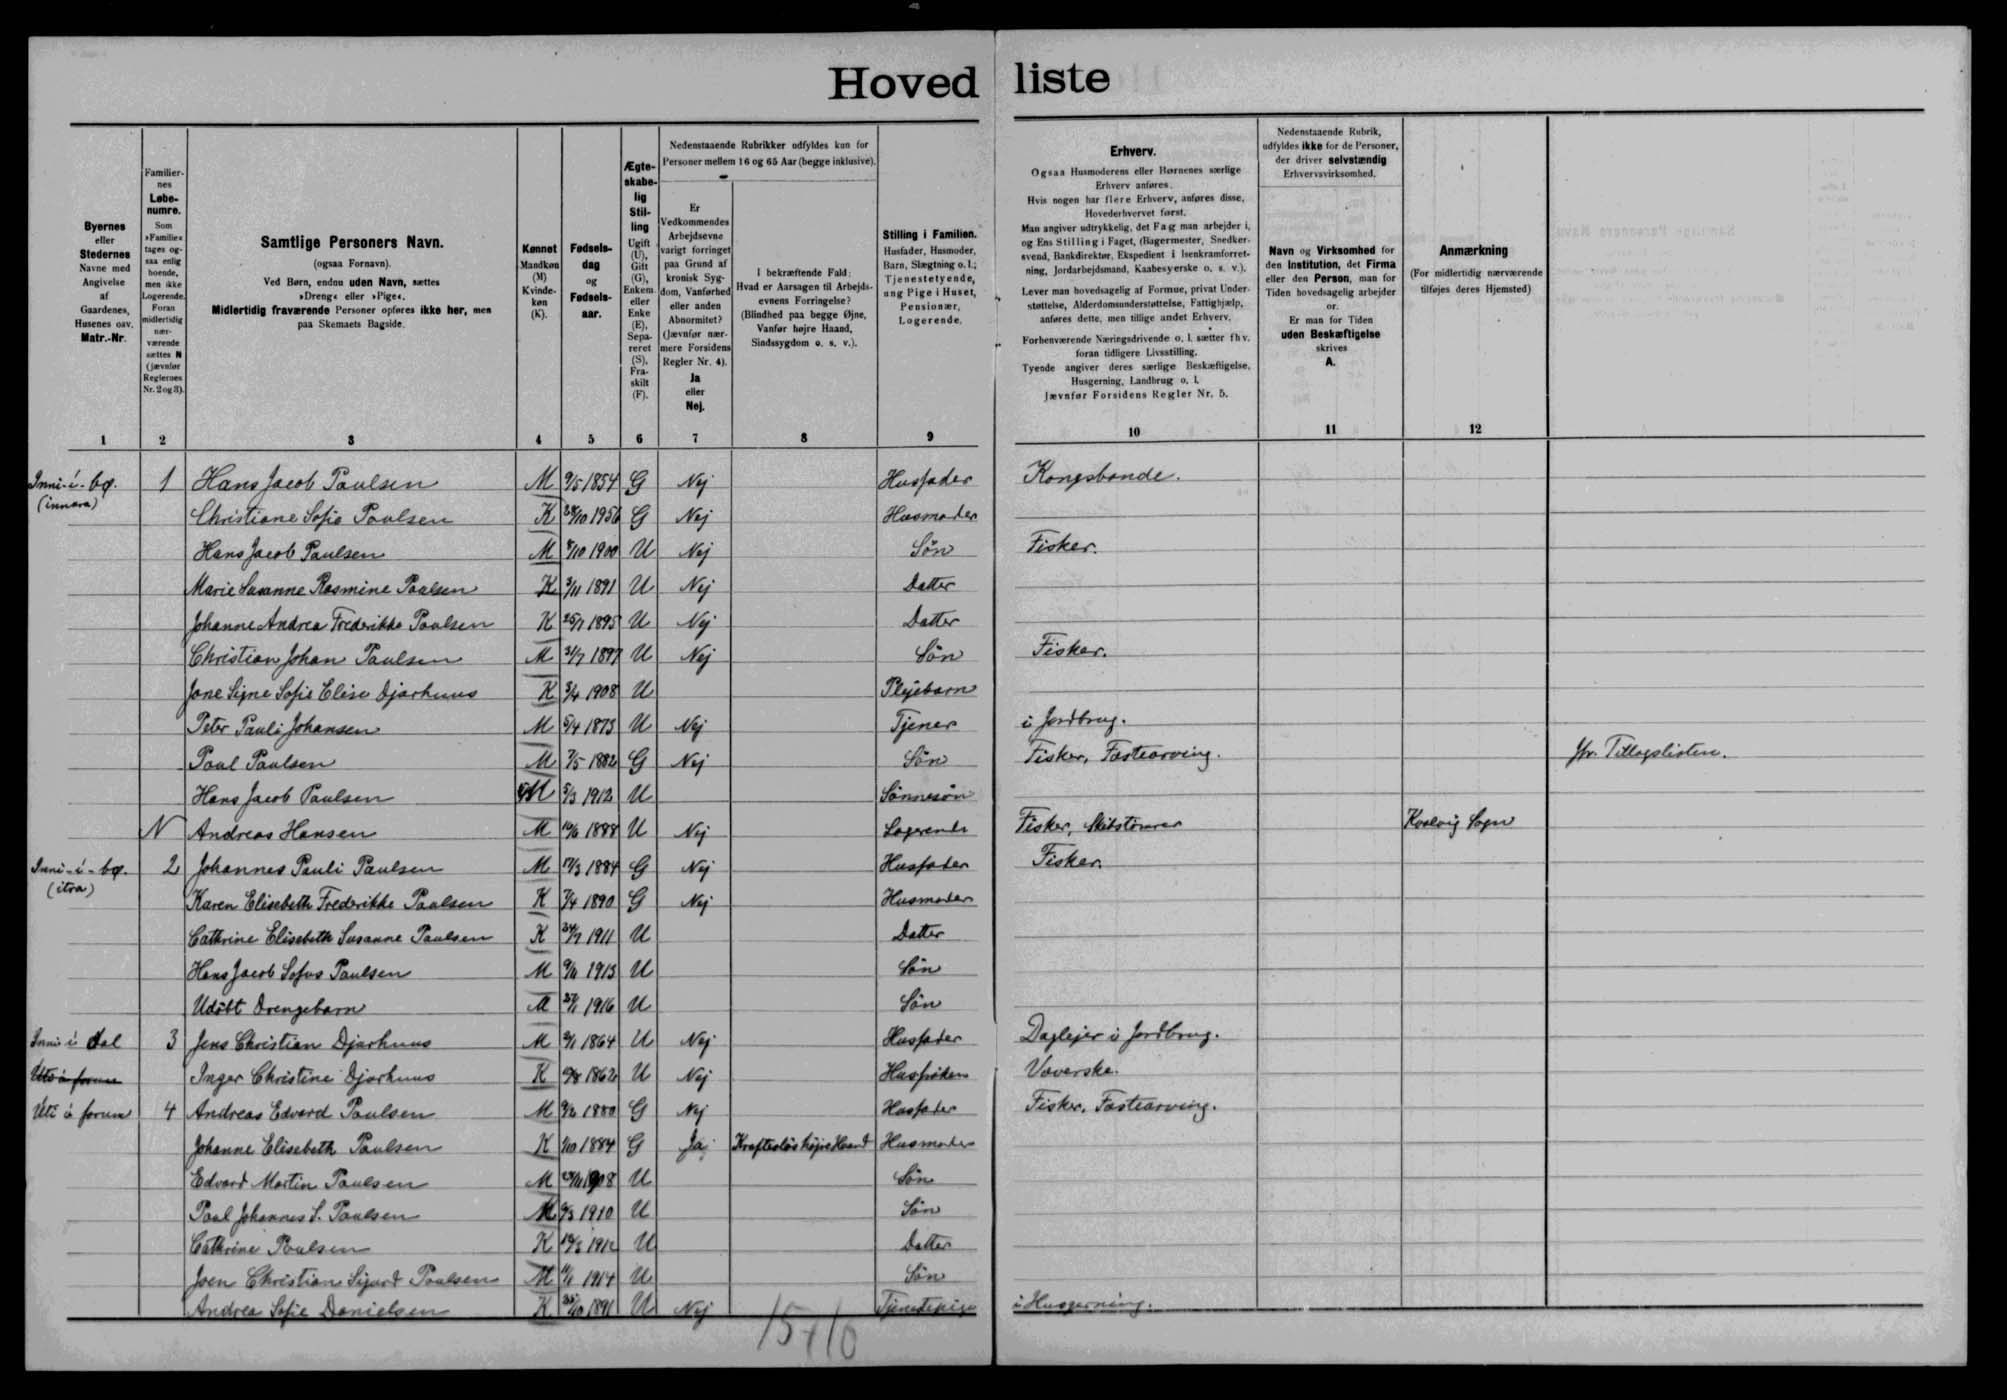 Hovedliste
Byernes eller Stedernes Navne med Angivelse af Gaardenes, Husenes osv. Matr.-Nr.
Familiernes Løbenumre. Som »Familie« tages ogsaa enlig boende, men ikke Logerende. Foran midlertidig nærværende sættes N (jævnfør Reglernes Nr. 2 og 3).
Samtlige Personers Navn.
(ogsaa Fornavn).
Ved Børn, endnu uden Navn, sættes »Dreng« eller »Pige«.
Midlertidig fraværende Personer opføres ikke her, men paa Skemaets Bagside.
Kønnet Mandkøn (M) Kvindekøn (K).
Fødselsdag og Fødselsaar.
Ægteskabelig Stilling Ugift (U), Gift (G), Enkem. eller Enke (E), Separeret (S), Fraskilt (F).
Nedenstaaende Rubrikker udfyldes kun for Personer mellem 16 og 65 Aar (begge inklusive).
Er Vedkommendes Arbejdsevne varigt forringet paa Grund af kronisk Sygdom, Vanførhed eller anden Abnormitet? (Jævnfør nærmere Forsidens Regler Nr. 4). Ja eller Nej.
I bekræftende Fald: Hvad er Aarsagen til Arbejdsevnens Forringelse? (Blindhed paa begge Øjne, Vanfør højre Haand, Sindssygdom o. s. v.).
Stilling i Familien. Husfader, Husmoder, Barn, Slægtning o. l.; Tjenestetyende, ung Pige i Huset, Pensionær, Logerende.
Erhverv.
Ogsaa Husmoderens eller Børnenes særlige Erhverv anføres.
Hvis nogen har flere Erhverv, anføres disse, Hovederhvervet først.
Man angiver udtrykkelig, det Fag man arbejder i, og Ens Stilling i Faget, (Bagermester, Snedkersvend, Bankdirektør, Ekspedient i Isenkramforretning, Jordarbejdsmand, Kaabesyerske o. s. v.).
Lever man hovedsagelig af Formue, privat Understøttelse, Alderdomsunderstøttelse, Fattighjælp, anføres dette, men tillige andet Erhverv.
Forhenværende Næringsdrivende o. l. sætter fhv. foran tidligere Livsstilling.
Tyende angiver deres særlige Beskæftigelse, Husgerning, Landbrug o. l.
Jævnfør Forsidens Regler Nr. 5.
Nedenstaaende Rubrik, udfyldes ikke for de Personer, der driver selvstændig Erhvervsvirksomhed.
Navn og Virksomhed for den Institution, det Firma eller den Person, man for Tiden hovedsagelig arbejder or.
Er man for Tiden uden Beskæftigelse skrives A.
Anmærkning
(For midlertidig nærværende tilføjes deres Hjemsted)
1 2 3 4 5 6 7 8 9 10 11 12
Inni-í-bø. 1 Hans Jacob Paulsen M 9/5 1854 G Nej Husfader Kongsbonde.
(innara)
Christiane Sofie Poulsen K 28/10 1956 G Nej Husmoder
Hans Jacob Paulsen M 8/10 1900 U Nej Søn Fisker.
Marie Susanne Rasmine Paulsen K 3/11 1891 U Nej Datter
Johanne Andrea Frederikke Paulsen K 25/7 1895 U Nej Datter
Christian Johan Paulsen M 31/7 1897 U Nej Søn Fisker.
Jone Signe Sofie Elise Djørhuus K 3/4 1908 U Plejebarn
Peter Pauli Johansen M 5/4 1873 U Nej Tjener i Jordbrug.
Poul Paulsen M 7/5 1882 G Nej Søn Fisker, Fæstearving. Jfr. Tillægslisten.
Hans Jacob Paulsen M 5/3 1912 U Sønnesøn
N Andreas Hansen M 10/6 1888 U Nej Logerende Fisker, Skibstømrer Kvalvig Sogn
Inni-í-bø. 2 Johannes Pauli Paulsen M 17/3 1884 G Nej Husfader Fisker.
(itra)
Karen Elisebeth Frederikke Paulsen K 7/4 1890 G Nej Husmoder
Cathrine Elisebeth Susanne Paulsen K 24/7 1911 U Datter
Hans Jacob Sofus Paulsen M 9/11 1913 U Søn
Udøbt Drengebarn M 27/1 1916 U Søn
Inni í dal 3 Jens Christian Djørhuus M 2/1 1864 U Nej Husfader Daglejer i Jordbrug.
Inger Christine Djørhuus K 9/8 1862 U Nej Husfrøken Væverske.
Uti á forum 4 Andreas Edvard Poulsen M 9/2 1880 G Nej Husfader Fisker, Fæstearving.
Johanne Elisebeth Paulsen K 1/10 1884 G Ja Kraftesløs højre Haand Husmoder
Edvard Martin Paulsen M 28/11 1908 U Søn
Poul Johannes S. Paulsen M 9/3 1910 U Søn
Cathrine Poulsen K 19/3 1912 U Datter
Joen Christian Sigurd Poulsen M 11/1 1914 U Søn
Andrea Sofie Danielsen K 25/10 1891 U Nej Tjenestepige i Husgerning.
15+10